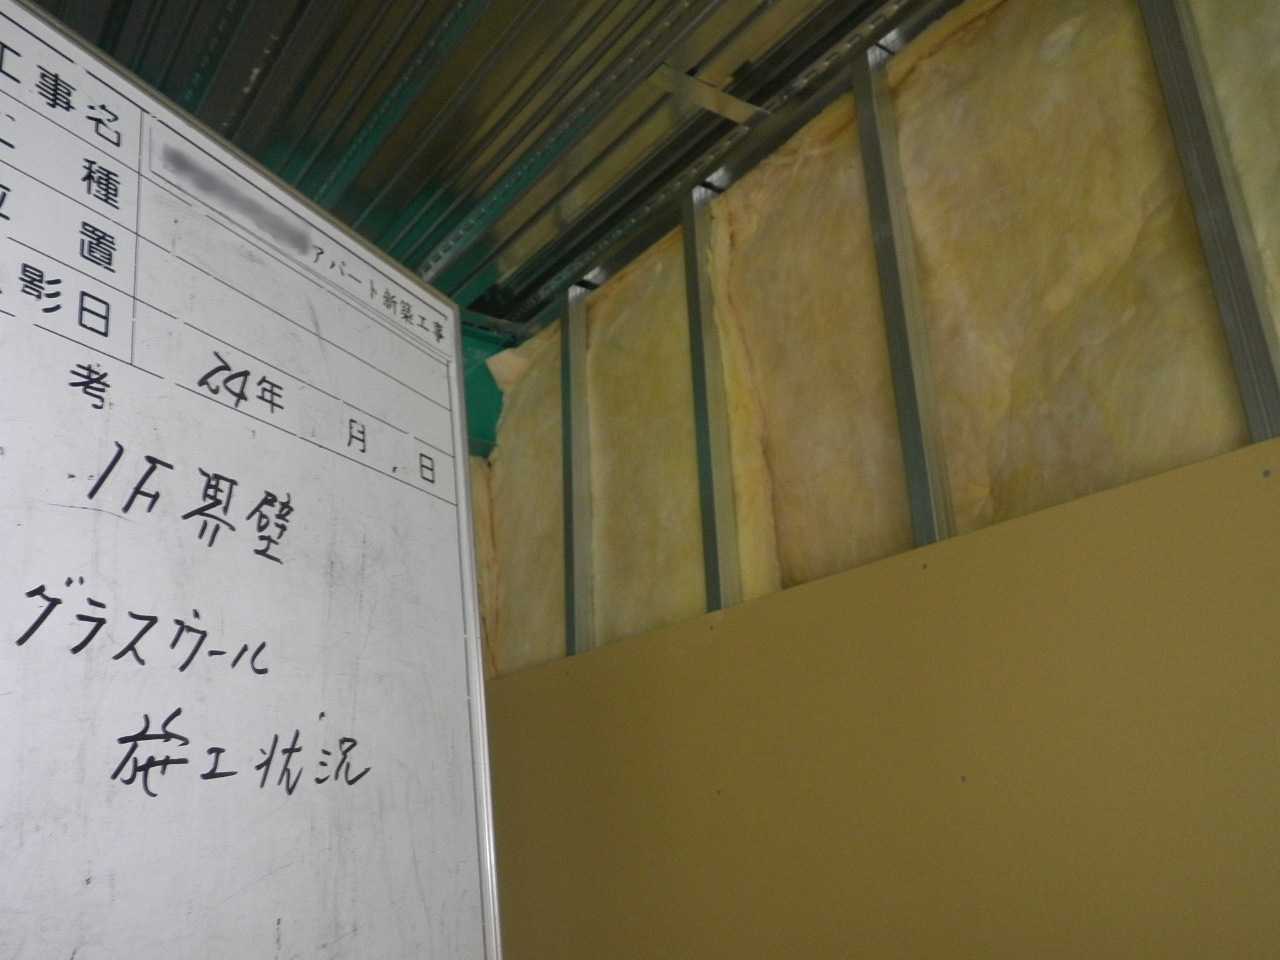 工事名 アパート新築工事
工種
位置
影日 24年 月 日
考
1F界壁
グラスウール
施工状況